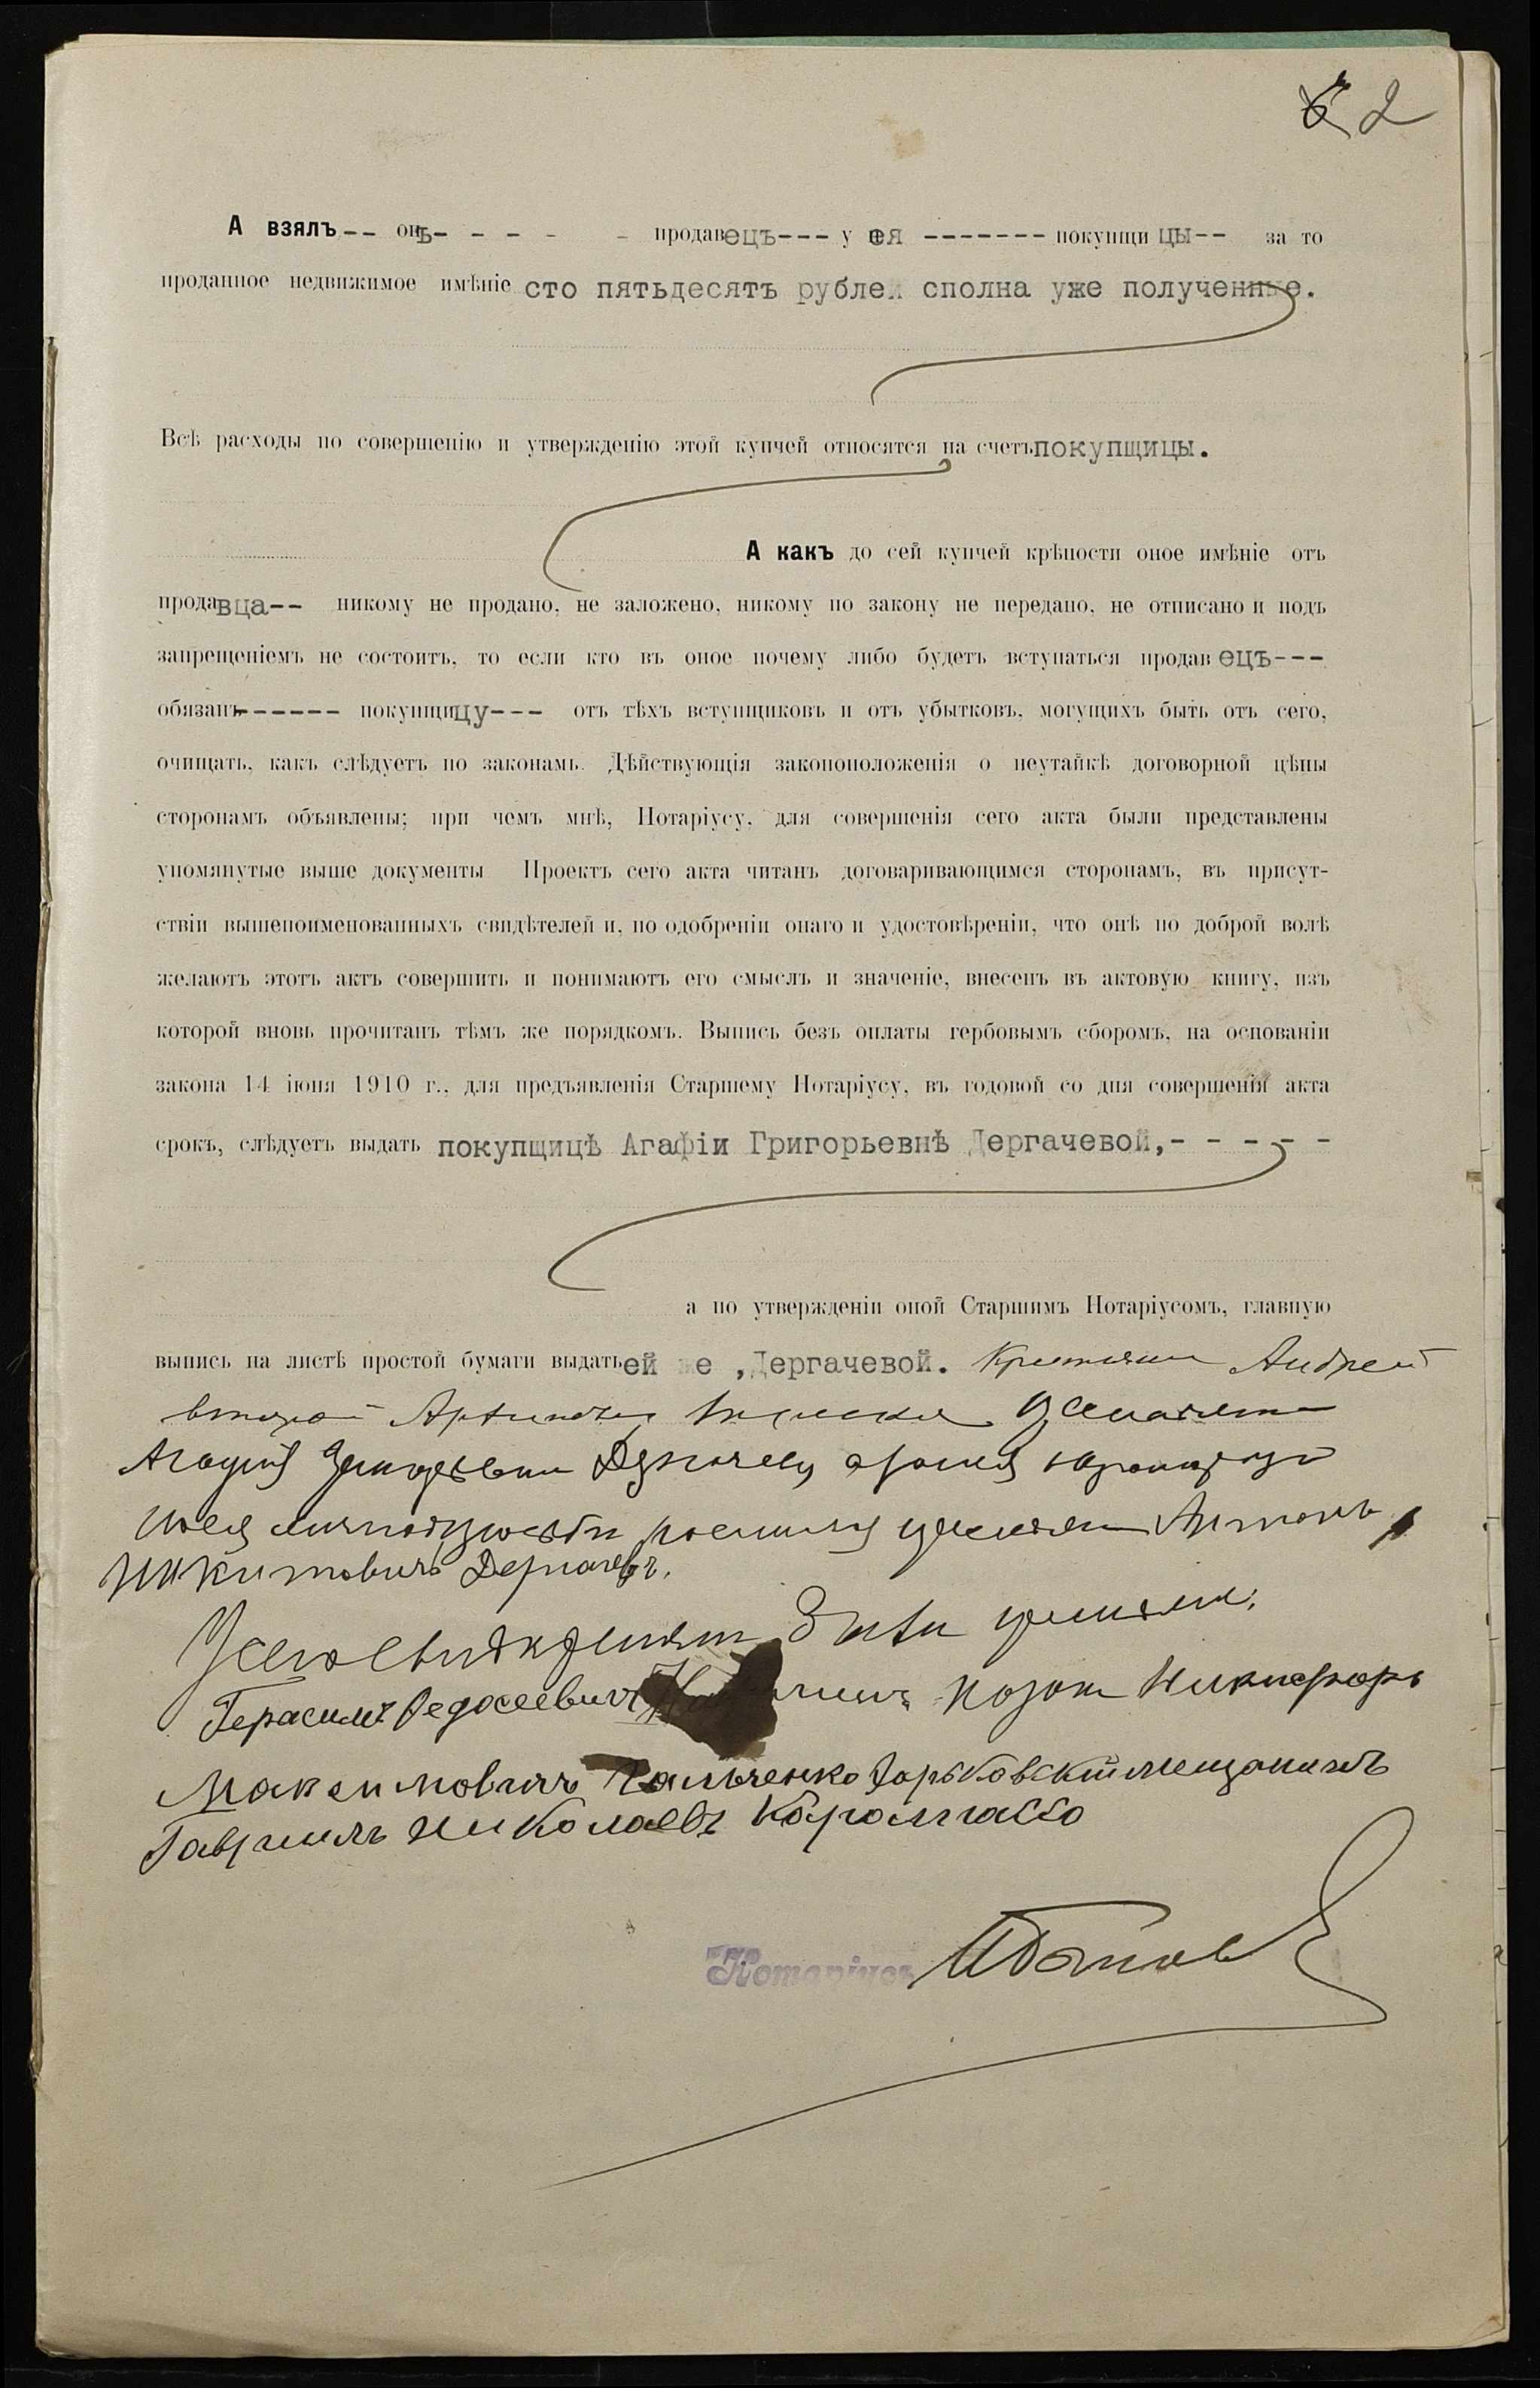 2
А взялъ -- онъ- - - - - - продавецъ--- у ея ------- покупщицы-- за то
проданное недвижимое имѣніе сто пятьдесятъ рублей сполна уже полученные.
Всѣ расходы по совершенію и утвержденію этой купчей относятся на счетъ покупщицы.
А какъ до сей купчей крѣпости оное имѣніе отъ
продавца-- никому не продано, не заложено, никому по закону не передано, не отписано и подъ
запрещеніемъ не состоитъ, то если кто въ оное почему либо будетъ вступаться продавецъ---
обязанъ------ покупщицу--- отъ тѣхъ вступщиковъ и отъ убытковъ, могущихъ быть отъ сего,
очищать, какъ слѣдуетъ по законамъ. Дѣйствующія законоположенія о неутайкѣ договорной цѣны
сторонамъ объявлены; при чемъ мнѣ, Нотаріусу, для совершенія сего акта были представлены
упомянутые выше документы Проектъ сего акта читанъ договаривающимся сторонамъ, въ присут-
ствіи вышепоименованныхъ свидѣтелей и, по одобреніи онаго и удостовѣреніи, что онѣ по доброй волѣ
желаютъ этотъ актъ совершить и понимаютъ его смыслъ и значеніе, внесенъ въ актовую книгу, изъ
которой вновь прочитанъ тѣмъ же порядкомъ. Выпись безъ оплаты гербовымъ сборомъ, на основаніи
закона 14 іюня 1910 г., для предъявленія Старшему Нотаріусу, въ годовой со дня совершенія акта
срокъ, слѣдуетъ выдать покупщицѣ Агафіи Григорьевнѣ Дергачевой,- - - - -
а по утвержденіи оной Старшимъ Нотаріусомъ, главную
выпись на листѣ простой бумаги выдать ей же ,Дергачевой. Крестьянин Андрей
Антонъ
Никитовичъ Дергачевъ.
Герасимъ Федосеевичъ козак Никифоръ
Максимовичъ Гальченко Харьковскій мещанинъ
Гавриилъ Николаевъ
Нотаріусъ